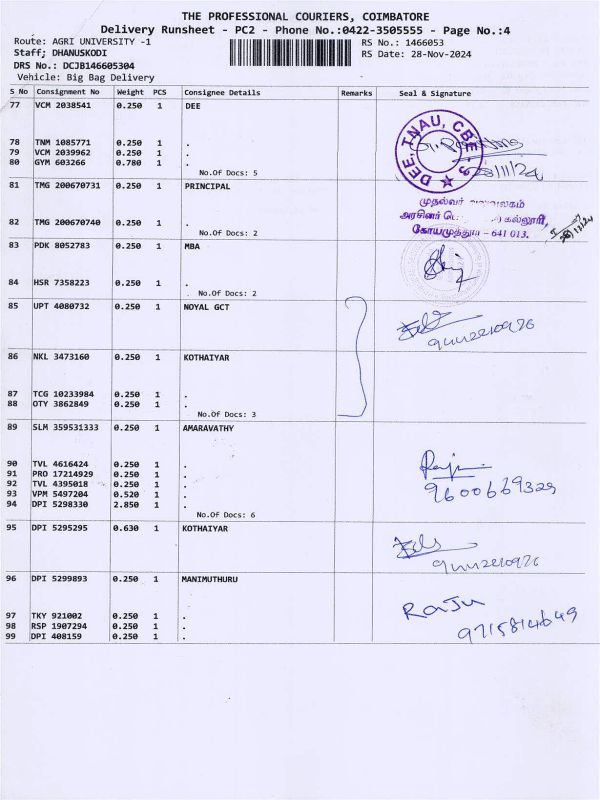 THE PROFESSIONAL COURIERS, COIMBATORE
Delivery Runsheet - PC2 - Phone No.:0422-3505555 - Page No.:4
Route: AGRI UNIVERSITY -1
RS No.: 1466053
Staff; DHANUSKODI
RS Date: 28-Nov-2024
DRS No.: DCJB146605304
Vehicle: Big Bag Delivery
S No Consignment No Weight PCS Consignee Details Remarks Seal & Signature
77 VCM 2038541 0.250 1 DEE
DEE, TNAU, CBE - 3
78 TNM 1085771 0.250 1 .
79 VCM 2039962 0.250 1 .
80 GYM 603266 0.780 1 .
28/11/24
No.Of Docs: 5
81 TMG 200670731 0.250 1 PRINCIPAL
முதல்வர் அலுவலகம்
அரசினர் கல்லூரி,
82 TMG 200670740 0.250 1 .
கோயமுத்தூர் - 641 013.
No.Of Docs: 2
83 PDK 8052783 0.250 1 MBA
84 HSR 7358223 0.250 1 .
No.Of Docs: 2
85 UPT 4080732 0.250 1 NOYAL GCT
86 NKL 3473160 0.250 1 KOTHAIYAR
87 TCG 10233984 0.250 1 .
88 OTY 3862849 0.250 1 .
No.Of Docs: 3
89 SLM 359531333 0.250 1 AMARAVATHY
90 TVL 4616424 0.250 1 .
91 PRO 17214929 0.250 1 .
92 TVL 4395018 0.250 1 .
93 VPM 5497204 0.520 1 .
94 DPI 5298330 2.850 1 .
9600669329
No.Of Docs: 6
95 DPI 5295295 0.630 1 KOTHAIYAR
96 DPI 5299893 0.250 1 MANIMUTHURU
RaJu
97 TKY 921002 0.250 1 .
98 RSP 1907294 0.250 1 .
99 DPI 408159 0.250 1 .
9715814649